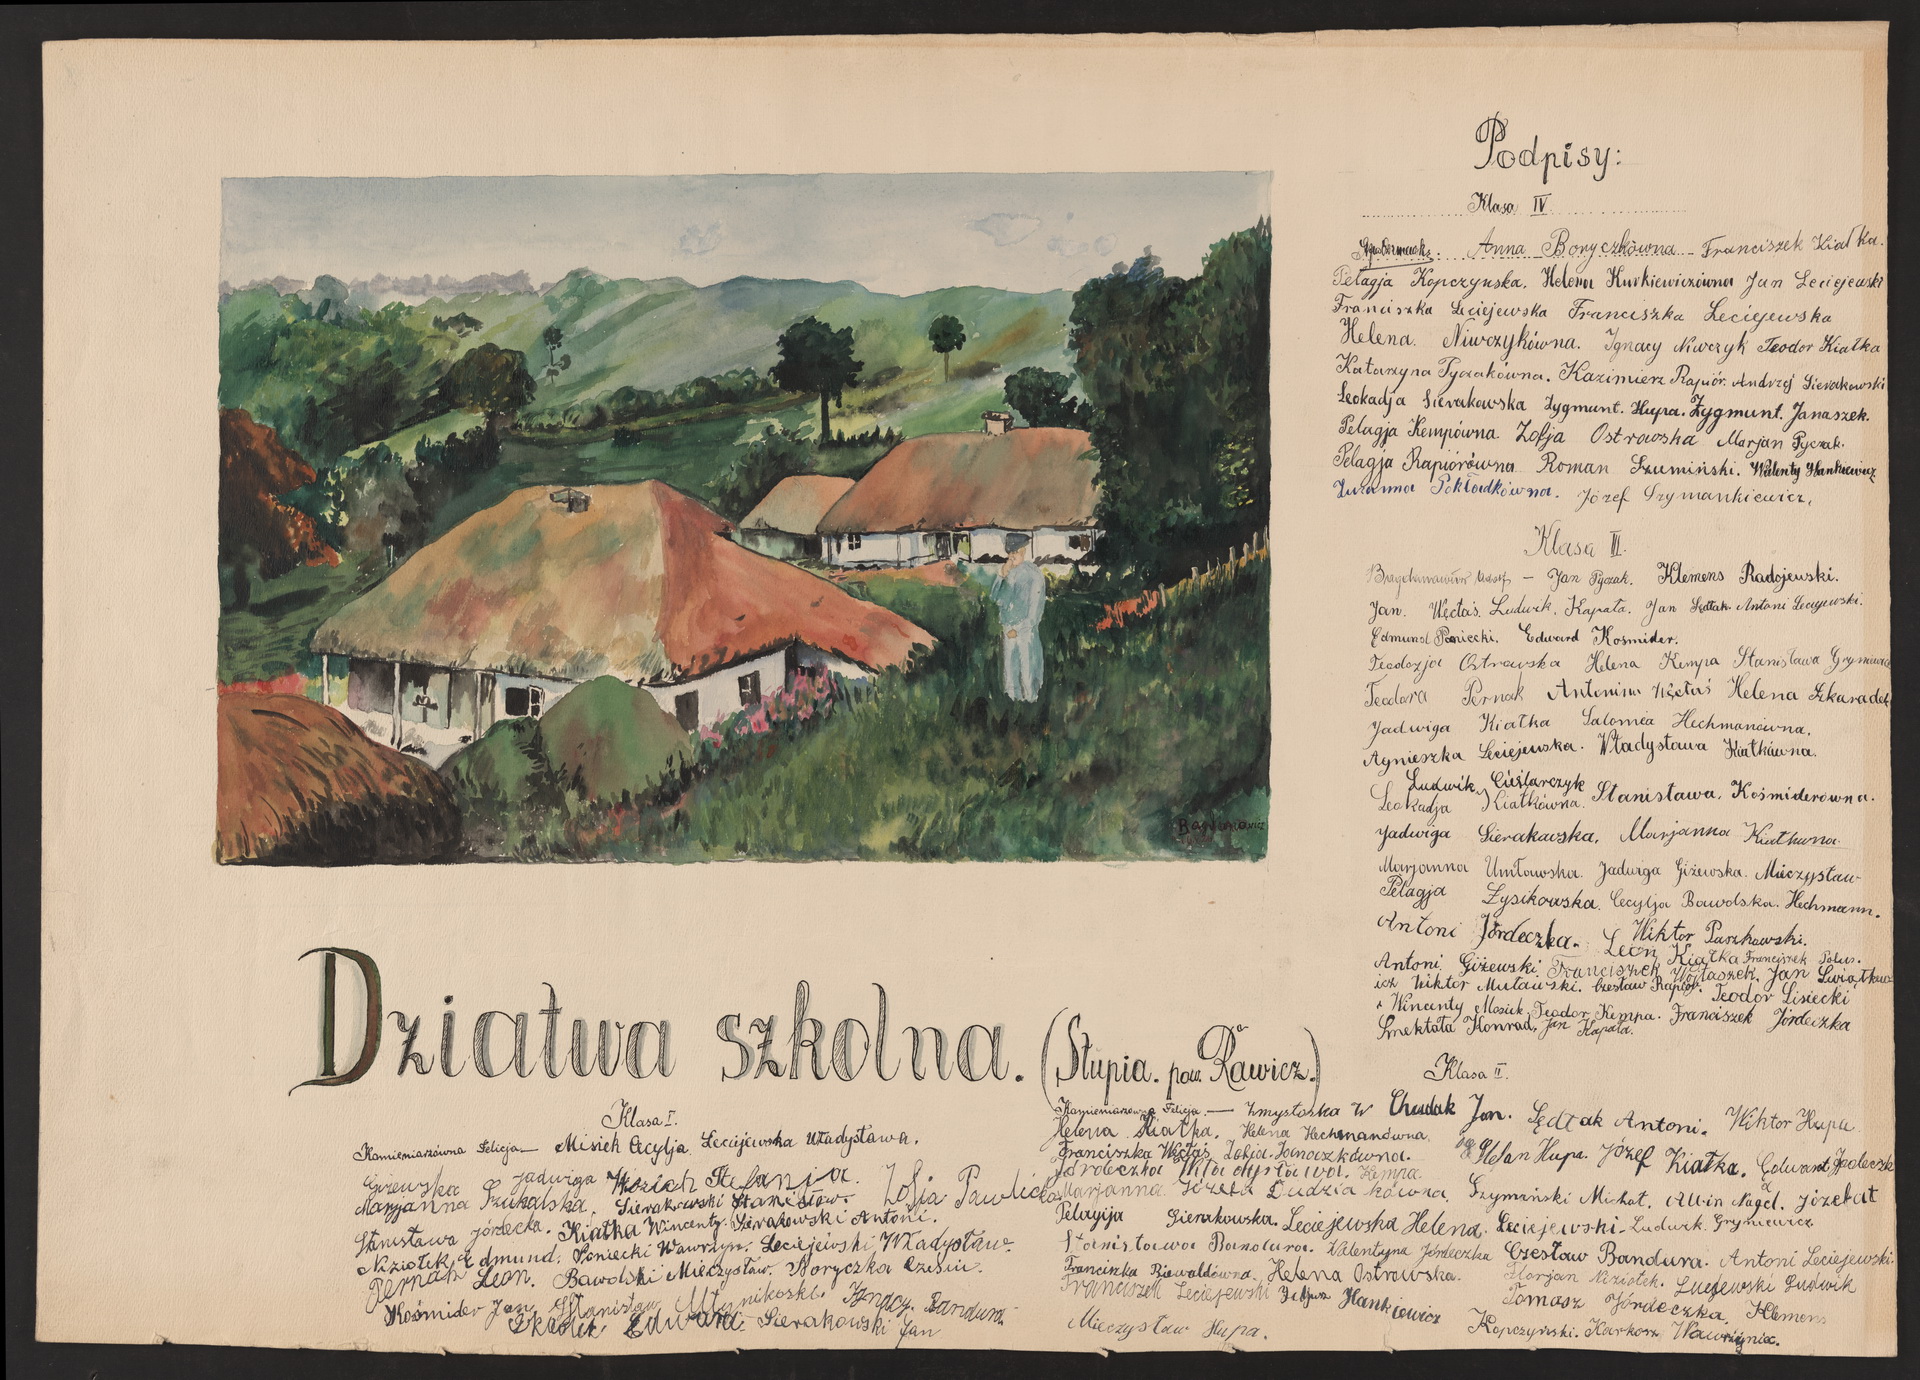 Podpisy:
Klasa IV
Anna Boryczkówna Franciszek Kiałka.
Pelagja Kopczyńska. Helena Kurkiewiczówna Jan Leciejewski
Franciszka Leciejewska Franciszka Leciejewska
Helena. Niwczykówna. Ignacy Niwczyk Teodor Kiałka
Katarzyna Pyzakówna. Kazimierz Rapiór. Andrzej Sierakowski
Leokadja Sierakowska Zygmunt. Hupa. Zygmunt. Janaszek.
Pelagja Kempówna. Zofja Ostrowska Marjan Pyczak.
Pelagja Rapiórówna Roman Szumiński. Walenty Hankiewicz
Zuzanna Pokładkówna. Józef Szymankiewicz.
Klasa III.
Jan Pyczak. Klemens Radojewski.
Jan. Węcłaś. Ludwik. Kapała. Jan Sędłak. Antoni Leciejewski.
Edmund Poniecki. Edward Kośmider.
Teodozja Ostrowska Helena Kempa Stanisława
Teodora Pernak Antonina Węcłaś Helena
Jadwiga Kiałka Salomea Hechmanówna.
Agnieszka Leciejewska. Władysława Kiałkówna.
Ludwik Cieślarczyk
Leokadja Kiałkówna. Stanisława. Kośmiderówna.
Jadwiga Sierakowska. Marjanna
Marjanna Umławska. Jadwiga Giżewska. Mieczysław
Pelagja Łysikowska. Cecylja Bawolska. Hechmann.
Antoni Jórdeczka. Wiktor Parzkowski.
Leon Kiałka Franciszek
Antoni Giżewski. Franciszek Wojtaszek. Jan
Wiktor Czesław Rapiór. Teodor Lisiecki
Wincenty Mosiek. Teodor Kempa. Franciszek Jórdeczka
Smektała Konrad. Jan Kapała.
Bagdanowicz
Dziatwa szkolna. (Słupia. pow. Rawicz.)
Klasa I.
Kamieniarzówna Felicja— Misiek Cecylja Leciejewska Władysława.
Giżewska Jadwiga Stefanja.
Marjanna Szukalska. Sierakowski Stanisław. Zofja Pawlicka
Stanisława Jórdecka. Kiałka Wincenty. Sierakowski Antoni.
Niziołek Edmund. Poniecki Wawrzyn. Leciejewski Władysław.
Pernak Leon. Bawolski Mieczysław. Boryczka
Kośmider Jan Stanisław Ignacy Bandura.
Edward. Sierakowski Jan
Klasa II.
Kamieniarzówna Felicja.— Chudak Jan. Sędłak Antoni. Wiktor Hupa
Helena Kiałka. Helena Hechmanówna.
Franciszka Węcłaś Zofia Janaszkówna. Stefan Hupa. Józef Kiałka. Edward
Kempa
Marjanna Józefa Dudziakówna. Szymański Michał. Alwin Nagel. Józef
Pelagija Sierakowska. Leciejewska Helena. Leciejewski Ludwik. Grymiewicz.
Stanisława Bandura. Walentyna Jórdeczka Czesław Bandura. Antoni Leciejewski
Franciszka Helena Ostrowska. Florjan Niziołek. Ludwik
Franciszek Leciejewski Hankiewicz Tomasz Jórdeczka. Klemens
Mieczysław Hupa. Kopczyński. Wawrzyniec.